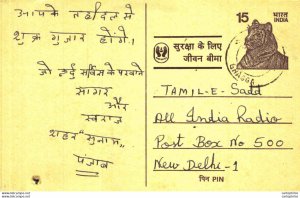 आपके तहदिल से
शुक्र गुजार होंगे।
जो हुई सर्विस के परवाने
सागर
और
स्वराज
शहर "सुनाम"
पंजाब
15 भारत
INDIA
सुरक्षा के लिए
जीवन बीमा
TAMIL-E-Sadd
All India Radio
Post Box No 500
New Delhi-1
पिन PIN